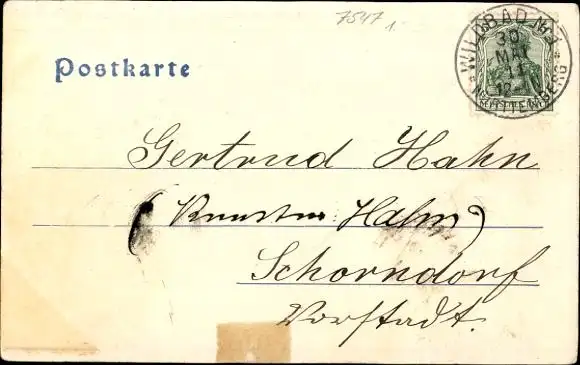 7517
1.
WILDBAD No 1
30
MAI
11
12-
WÜRTTEMBERG
Postkarte
Gertrud Hahn
Hahn)
Schorndorf
Vorstadt.